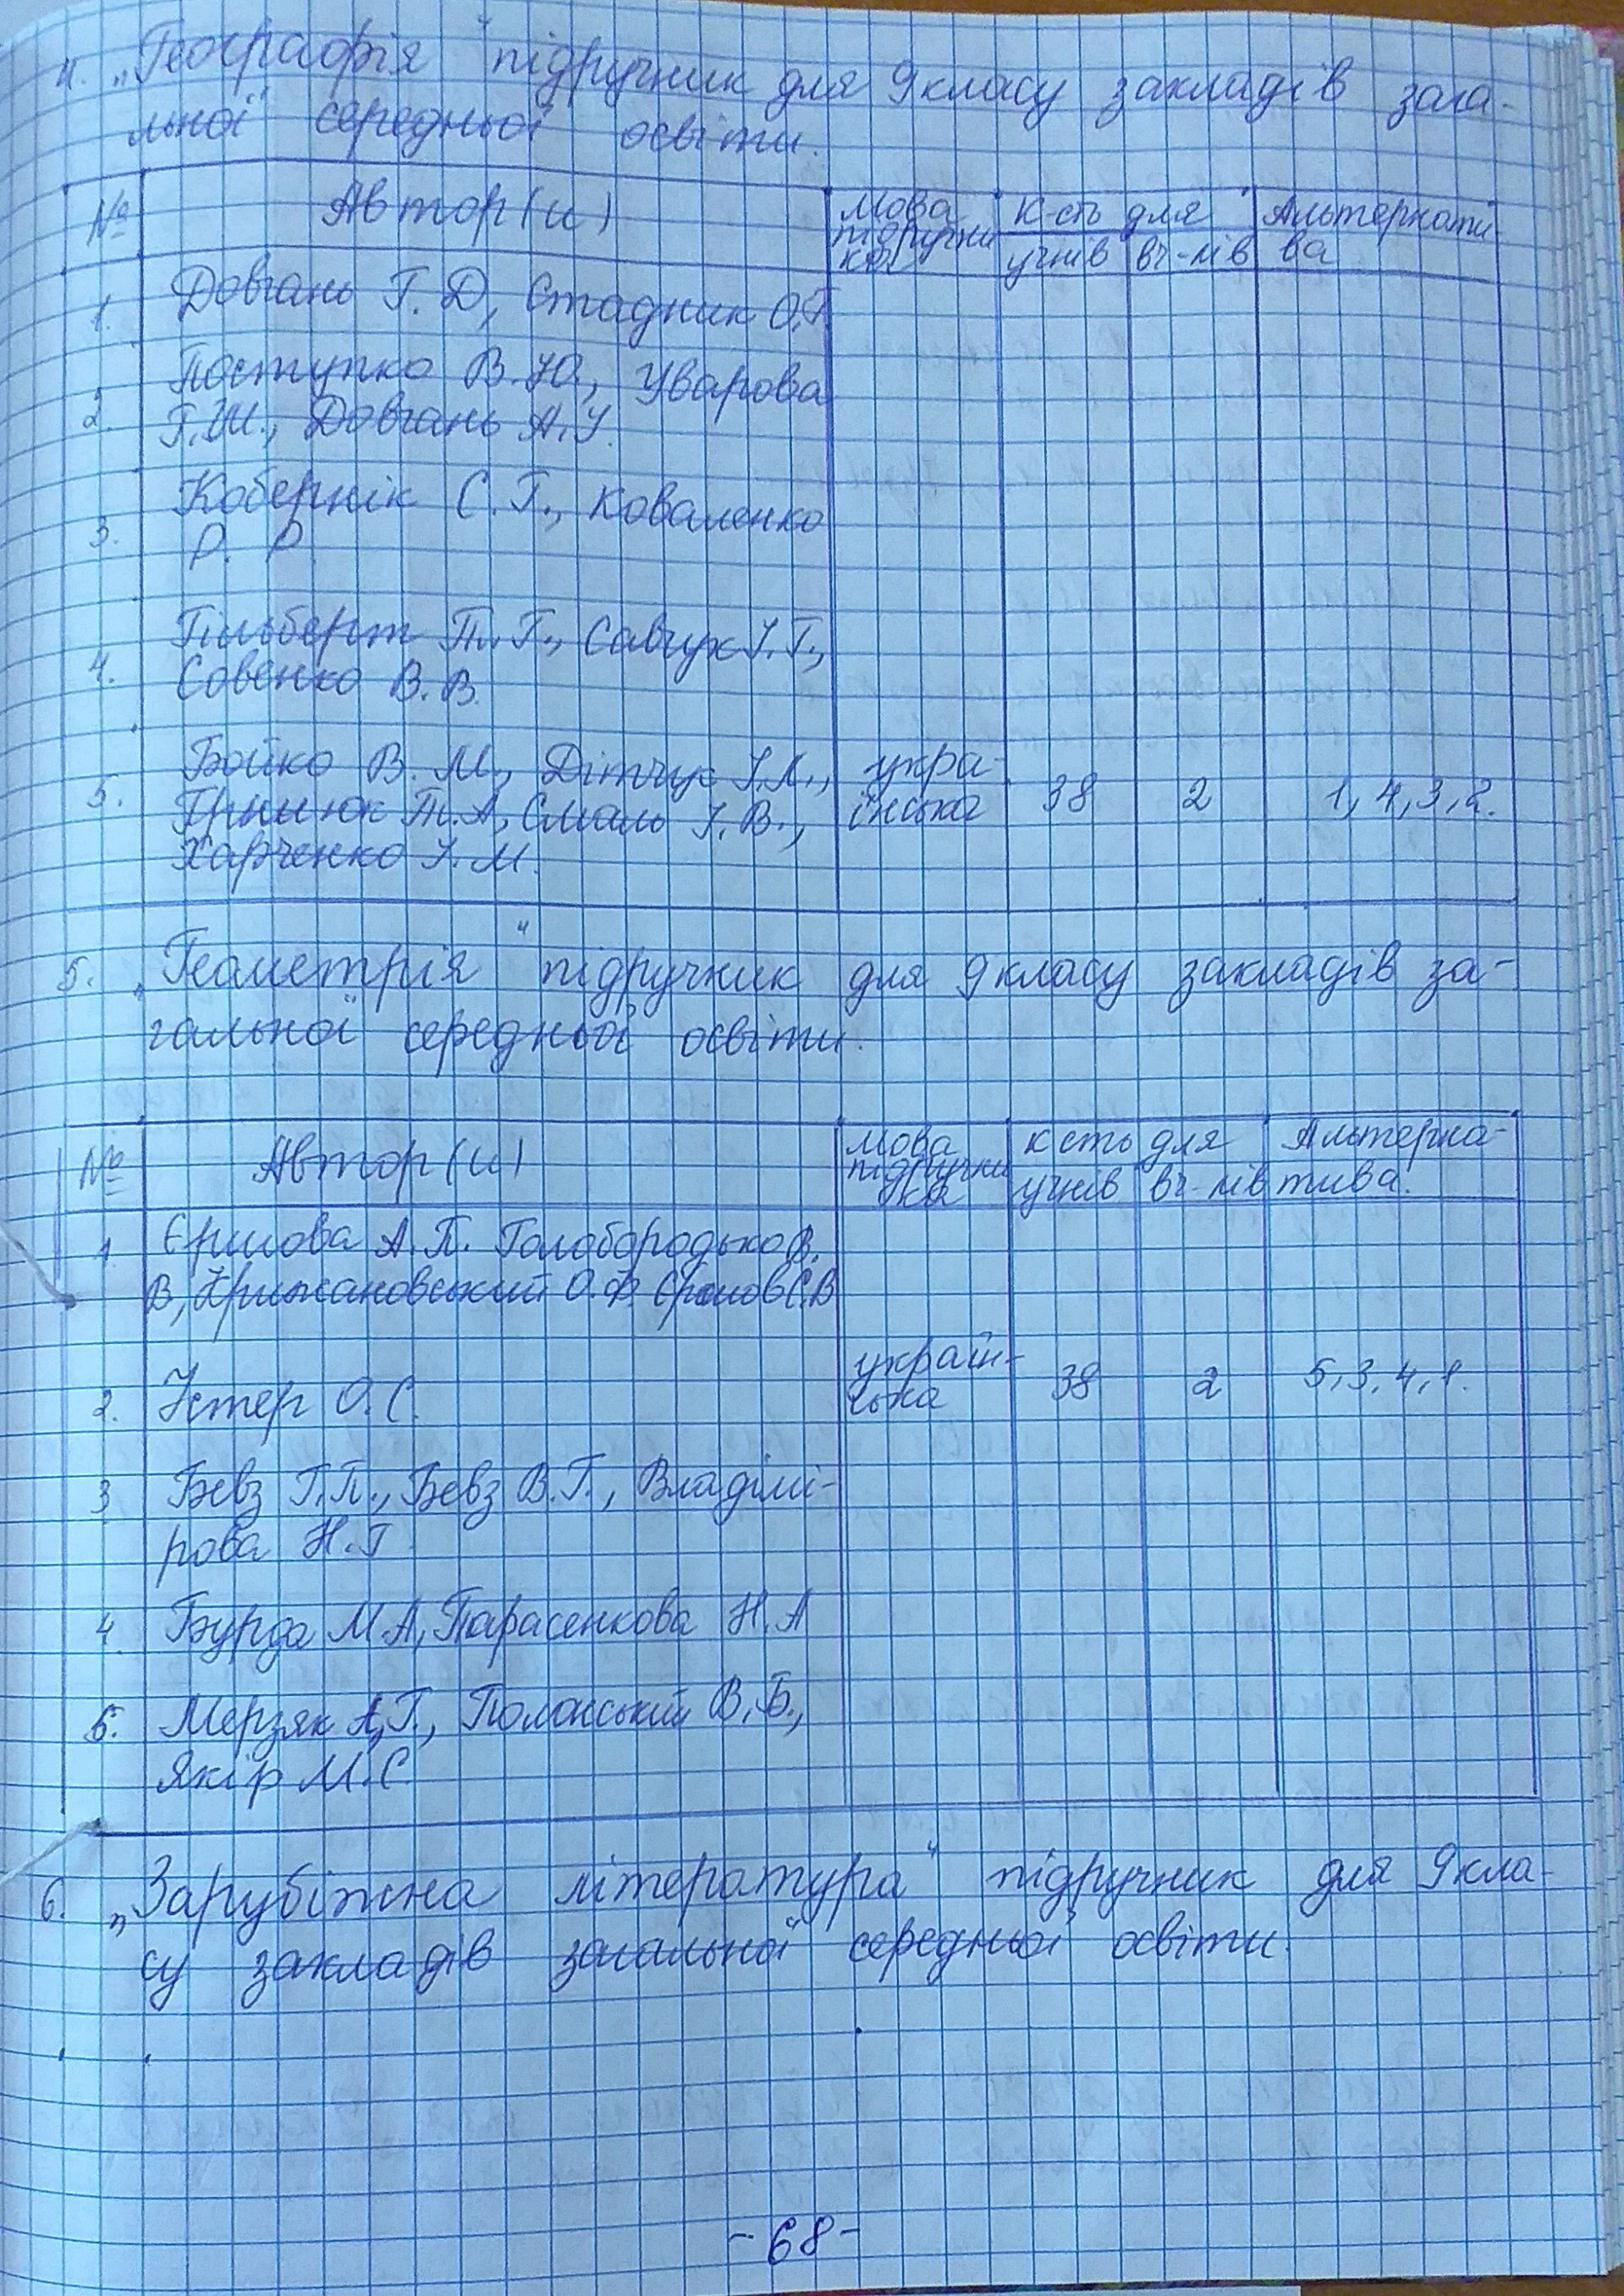 4. „Географія" підручник для 9 класу закладів зага-
льної середньої освіти.
№ Автор(и) Мова підручника К-сть для учнів вч-лів Альтернатива
1. Довгань Г. Д, Стадник О.Г
2. Поступко В.Ю, Уварова
Г.Ш., Довгань А.І.
3. Кобернік С. Г., Коваленко
Р. Р.
4. Гільберг Т. Г., Савчук І. Г.,
Совенко В. В.
5. Бойко В. М., Дітчук І.Л., укра-
Гринюк Т. А, Смаль І. В., їнська 38 2 1, 4, 3, 2.
Харченко І. М.
5. „Геометрія" підручник для 9 класу закладів за-
гальної середньої освіти.
№ Автор(и) Мова підручника К сть для учнів вч-лів Альтерна-
тива.
1. Єршова А. П. Голобородько В.
В, Крижановський О.Ф. Єршов С.В
2. Істер О. С. україн-
ська 38 2 5, 3, 4, 1.
3 Бевз Г.П., Бевз В.Г., Владімі-
рова Н.Г
4. Бурда М.А, Тарасенкова Н.А
5. Мерзяк А,Г., Полонський В.Б.,
Якір М.С.
6. „Зарубіжна література" підручник для 9 кла-
су закладів загальної середньої освіти.
-68-